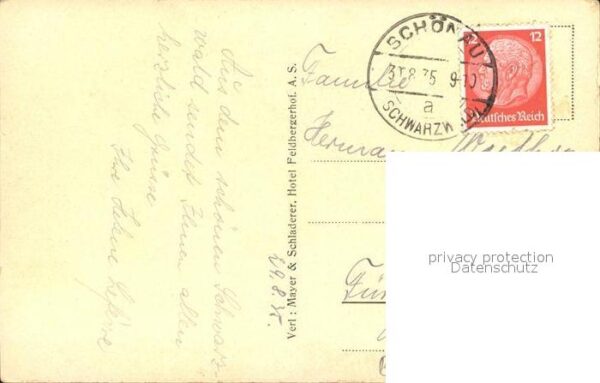 Aus dem schönen Schwarz-
wald sendet Ihnen allen
herzliche Grüsse
Ihre
29.8.35.
Verl: Mayer & Schladerer, Hotel Feldbergerhof, A. S.
SCHÖNAU
31.8.35 9-10
a
SCHWARZW
12
Deutsches Reich
Familie
privacy protection
Datenschutz